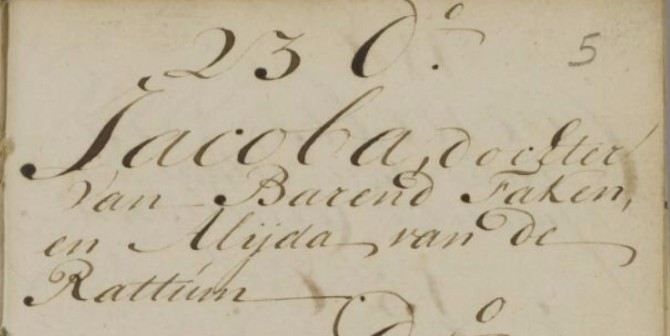 23 do. 5
Jacoba, dochter
van Barend Faken,
en Alijda van de
Rattum
do